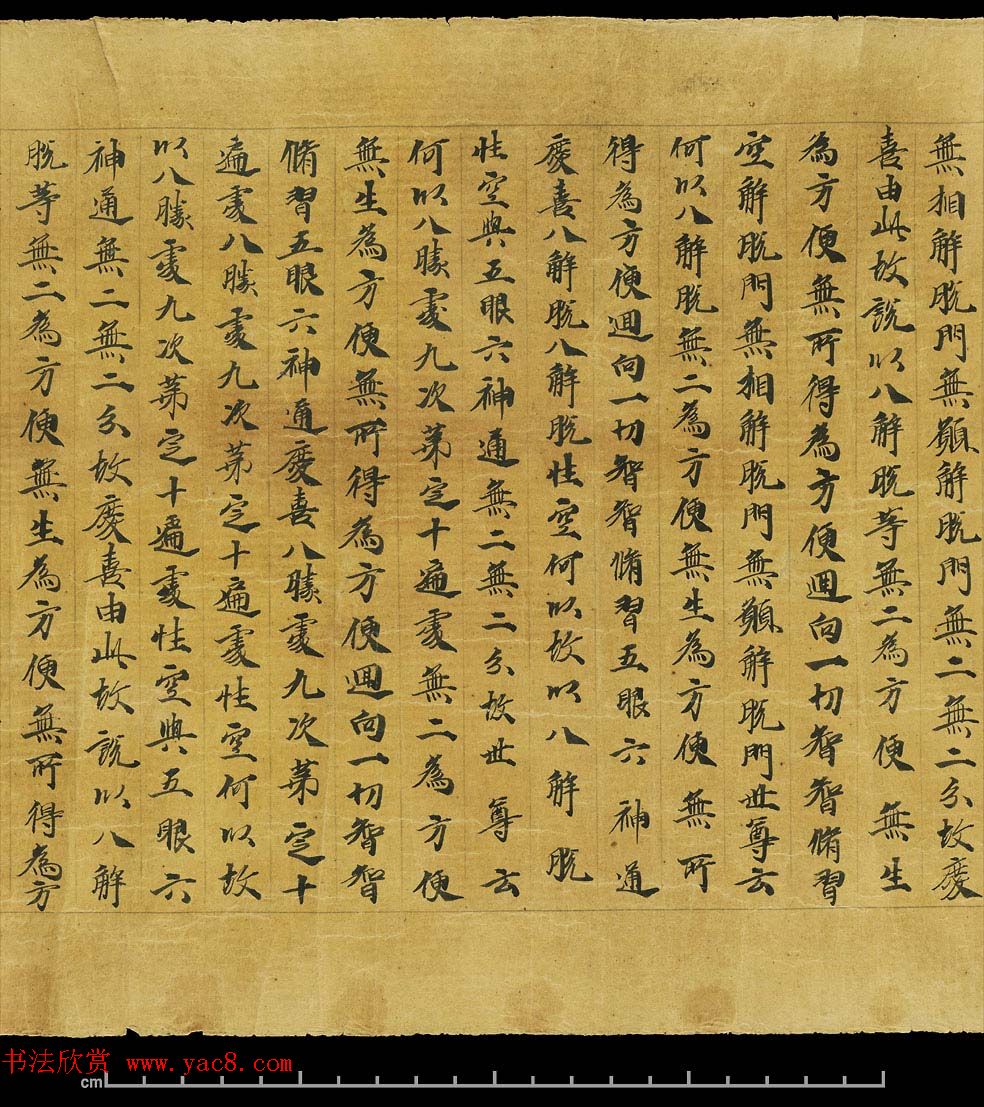 無相解脫門無願解脫門無二無二分故慶
喜由此故說以八解脫等無二為方便無生
為方便無所得為方便迴向一切智智脩習
空解脫門無相解脫門無願解脫門世尊云
何以八解脫無二為方便無生為方便無所
得為方便迴向一切智智脩習五眼六神通
慶喜八解脫八解脫性空何以故以八解脫
性空與五眼六神通無二無二分故世尊云
何以八勝處九次第定十遍處無二為方便
無生為方便無所得為方便迴向一切智智
脩習五眼六神通慶喜八勝處九次第定十
遍處八勝處九次第定十遍處性空何以故
以八勝處九次第定十遍處性空與五眼六
神通無二無二分故慶喜由此故說以八解
脫等無二為方便無生為方便無所得為方
书法欣赏 www.yac8.com
cm